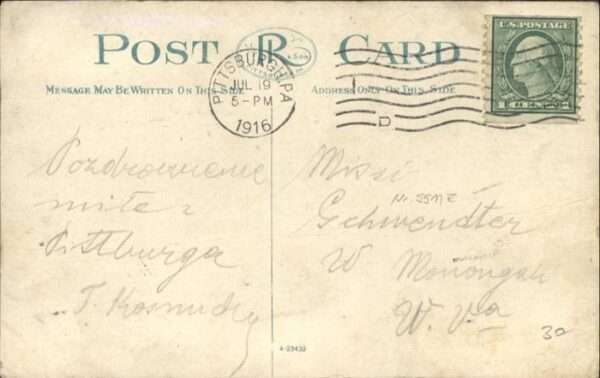 POST CARD
MESSAGE MAY BE WRITTEN ON THIS SIDE
ADDRESS ONLY ON THIS SIDE
PITTSBURGH, PA
JUL 19
5-PM
1916
U.S. POSTAGE
Pozdrowienie
miłe z
Pittburga
Missi
Gehwendter
W Monongah
W. Va
30
4-29430